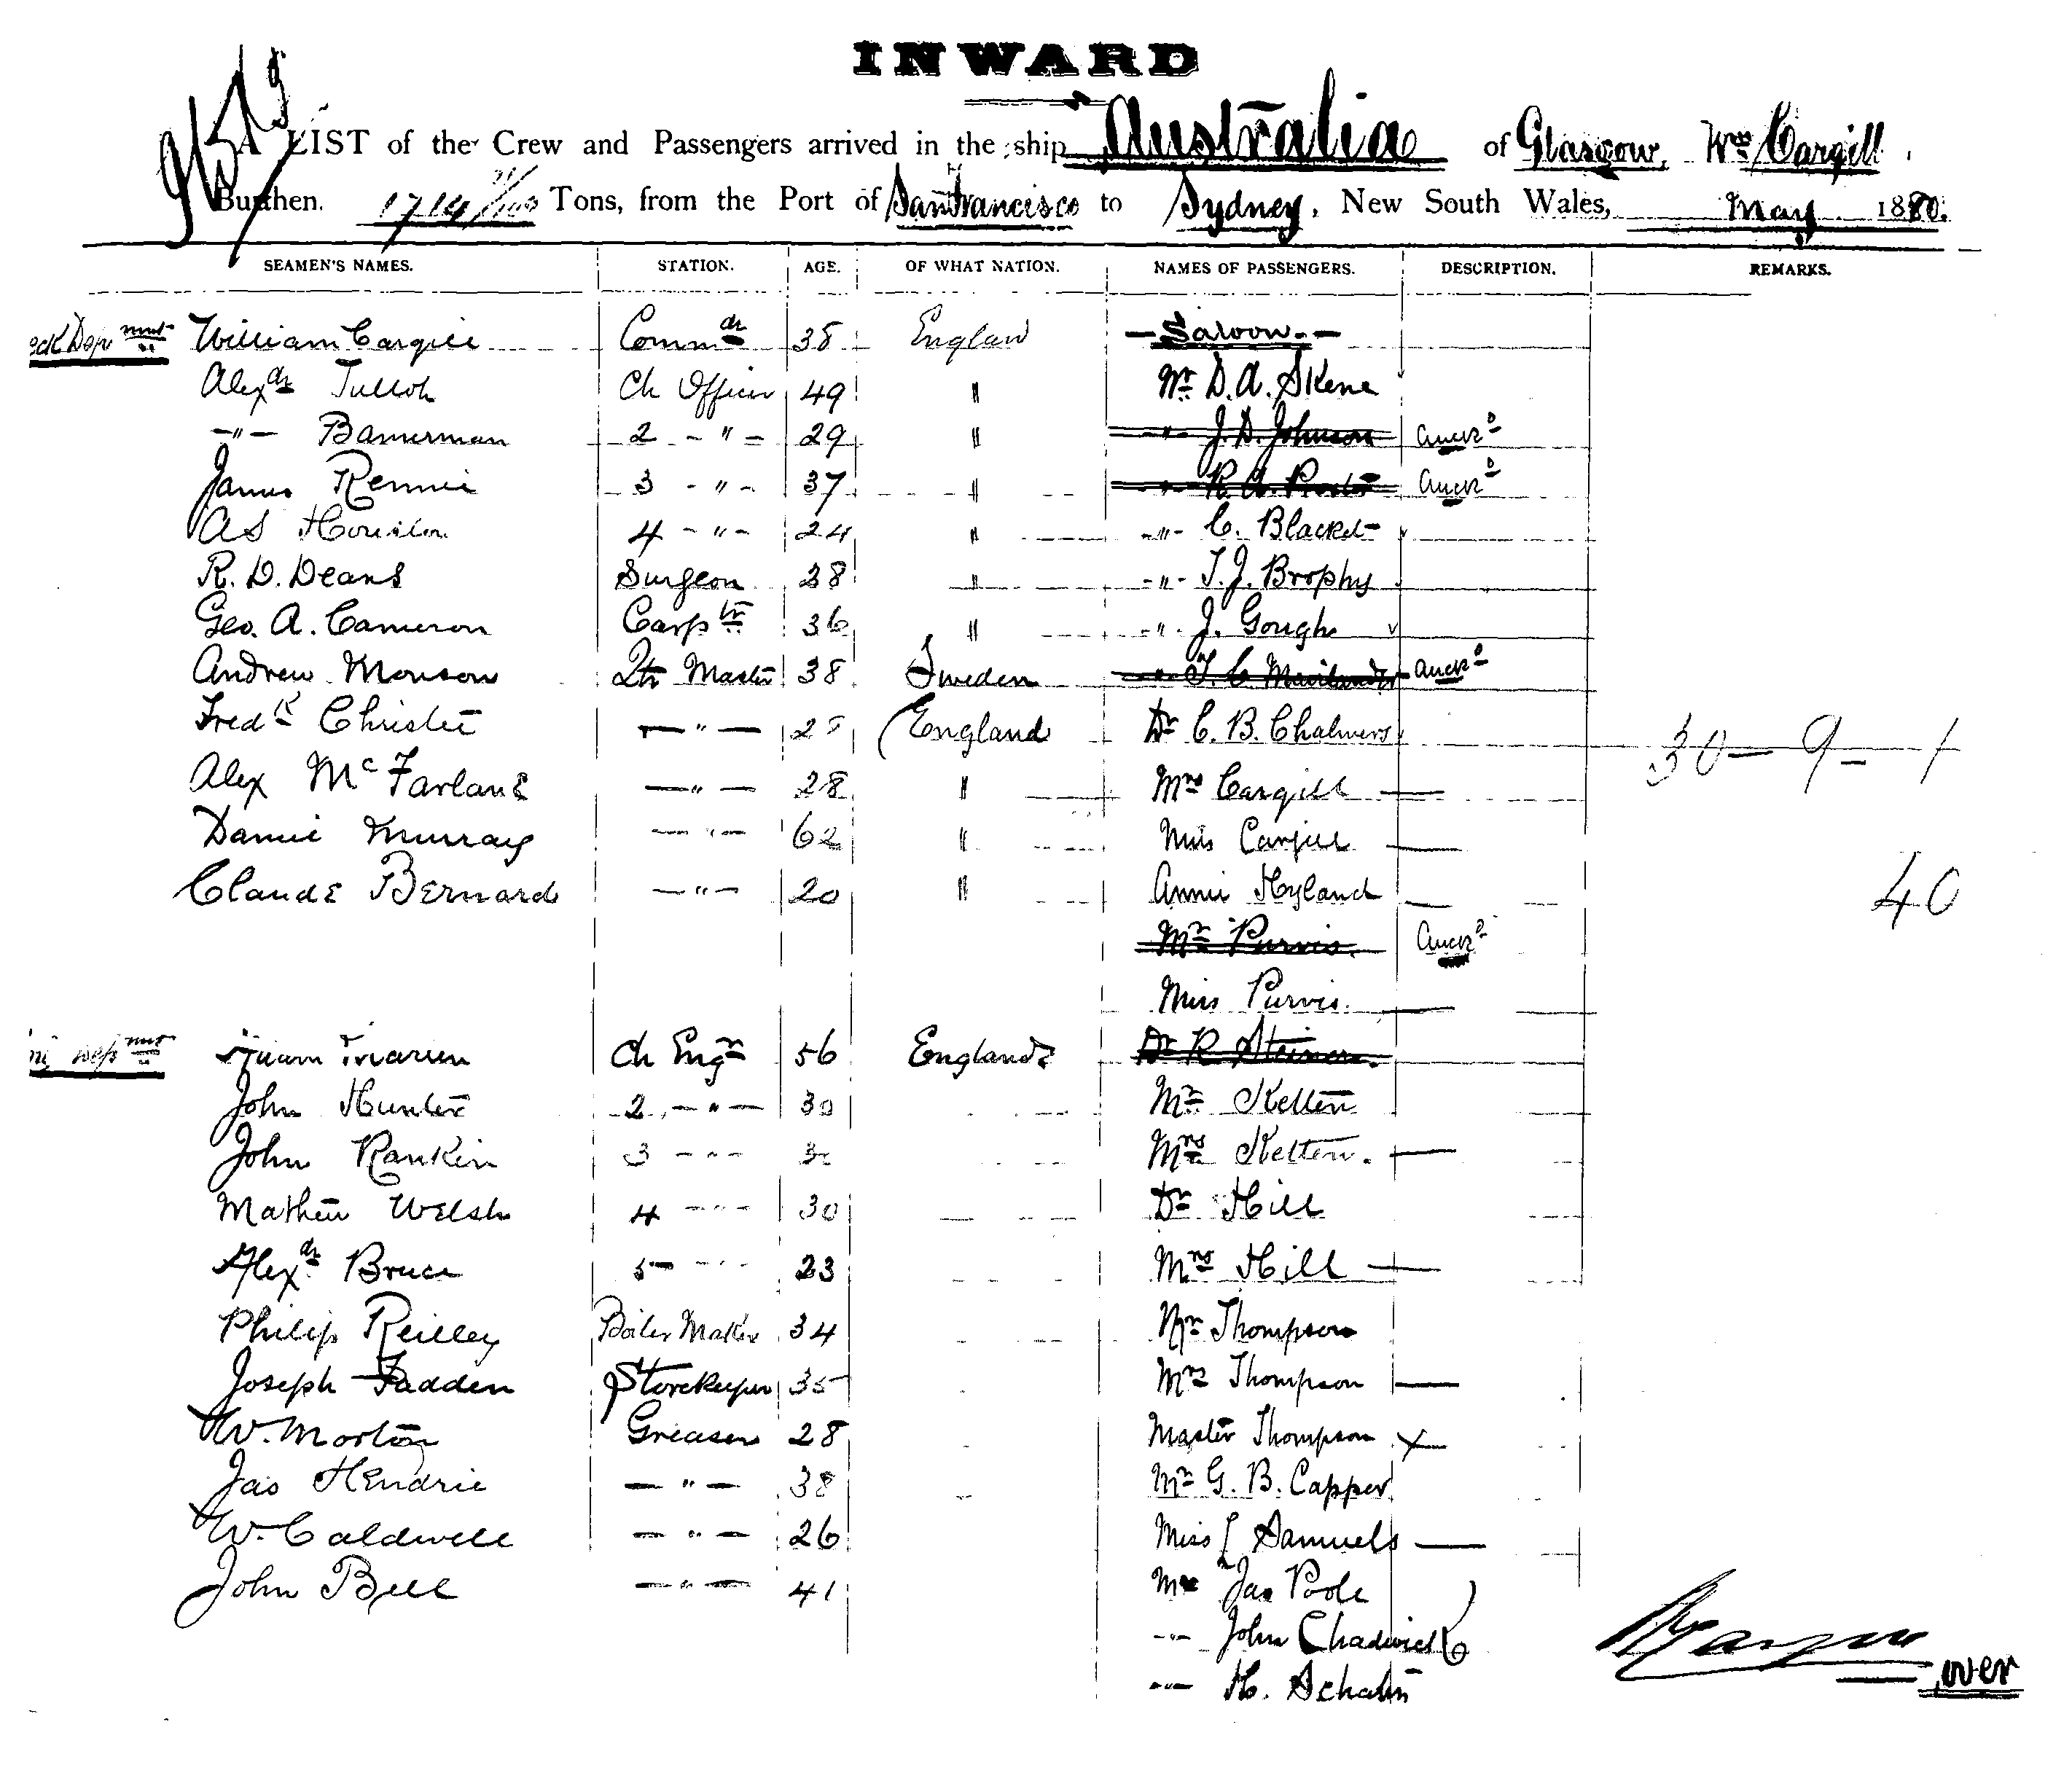 INWARD
A LIST of the Crew and Passengers arrived in the ship Australia of Glasgow, Wm Cargill
Burthen. 1714 71/100 Tons, from the Port of SanFrancisco to Sydney, New South Wales, May 1880.
SEAMEN'S NAMES. STATION. AGE. OF WHAT NATION. NAMES OF PASSENGERS. DESCRIPTION. REMARKS.
William Cargill Commdr 38 England — Saloon. —
Alexdr Tulloh Ch Officer 49 " Mr D. A. Skene
—"— Bannerman 2 - " - 29 " " J. D. Johnson Auckd
James Rennie 3 - " - 37 " " R. A. Auckd
A S Houston 4 - " - 24 " -"- C. Blacket
R. D. Deans Surgeon 28 " -"- T. J. Brophy
Geo. A. Cameron Carptr 36 " -"- J. Gough
Andrew Monson Qtr Master 38 Sweden " T. C. Auckd
Fredk Christie — " — England Dr C. B. Chalmers 30 — 9 — 1
Alex McFarlane — " — 28 " Mrs Cargill —
Daniel Murray — " — 62 " Miss Cargill —
Claude Bernard — " — 20 " Annie Hyland — 40
Mr Purvis. Auckd
Miss Purvis. —
Ch Engr 56 England Dr R Steiner.
John Hunter 2 — " — 30 Mr Kelten
John Rankin 3 - " - Mrs Kelten. —
Mathew Welsh 4 - " - 30 Dr Hill
Alexdr Bruce 5 - " - 23 Mrs Hill —
Philip Reilley Boiler Maker 34 Mr Thompson
Joseph Fadden Storekeeper 35 Mrs Thompson —
W. Morton Greaser 28 Master Thompson x
Jas Hendrie — " — 38 Mr G. B. Capper
W. Caldwell — " — 26 Miss L Samuels —
John Bell — " — 41 Mr Jas Poole
-"- John Chadwick
-"- H. Schahn
over